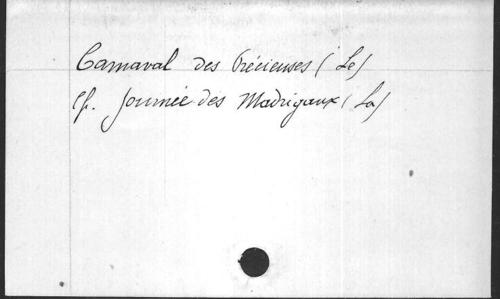 Carnaval des Précieuses (Le)
Cf. Journée des Madrigaux (La)